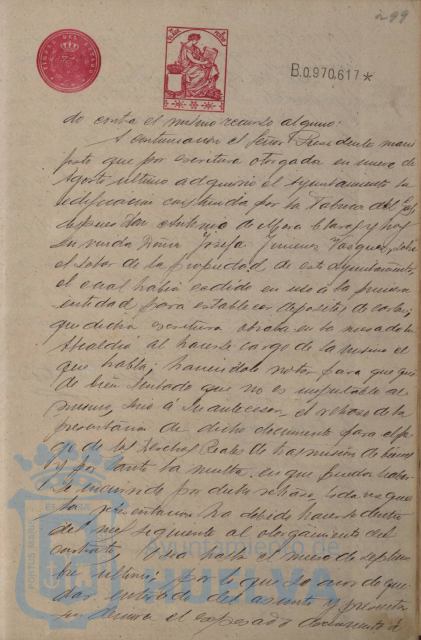 299
TIMBRE DEL ESTADO
B.0.970.617*
do contra el mismo recurso alguno.
A continuacion el Señor Presidente mani
festó que por escritura otorgada en nueve de
Agosto último adquirió el Ayuntamiento la
edificacion construida por la Fabrica del Gas
Don Antonio de Mora Claros y hoy
su viuda Doña Josefa Jimenez Vazquez, sobre
el solar de la propiedad de este Ayuntamiento,
el cual habia cedido en uso á la primera
entidad para establecer depositos de carbon;
que dicha escritura obraba en la mesa de la
Alcaldia al hacerse cargo de la misma el
que habla; haciendolo notar para que que
de bien sentado que no es imputable al
mismo, sino á su antecesor el retraso de la
presentacion de dicho documento para el pa
go de los Derechos Reales de trasmision de bienes
y por tanto la multa en que pueda haber
se incurrido por dicho retraso, toda vez que
la presentacion ha debido hacerse dentro
del mes siguiente al otorgamiento del
contrato, ó sea hasta el nueve de Septiem
bre ultimo; por lo que
dar enterado del asunto y
el expresado documento á
Ayuntamiento de
HUELVA